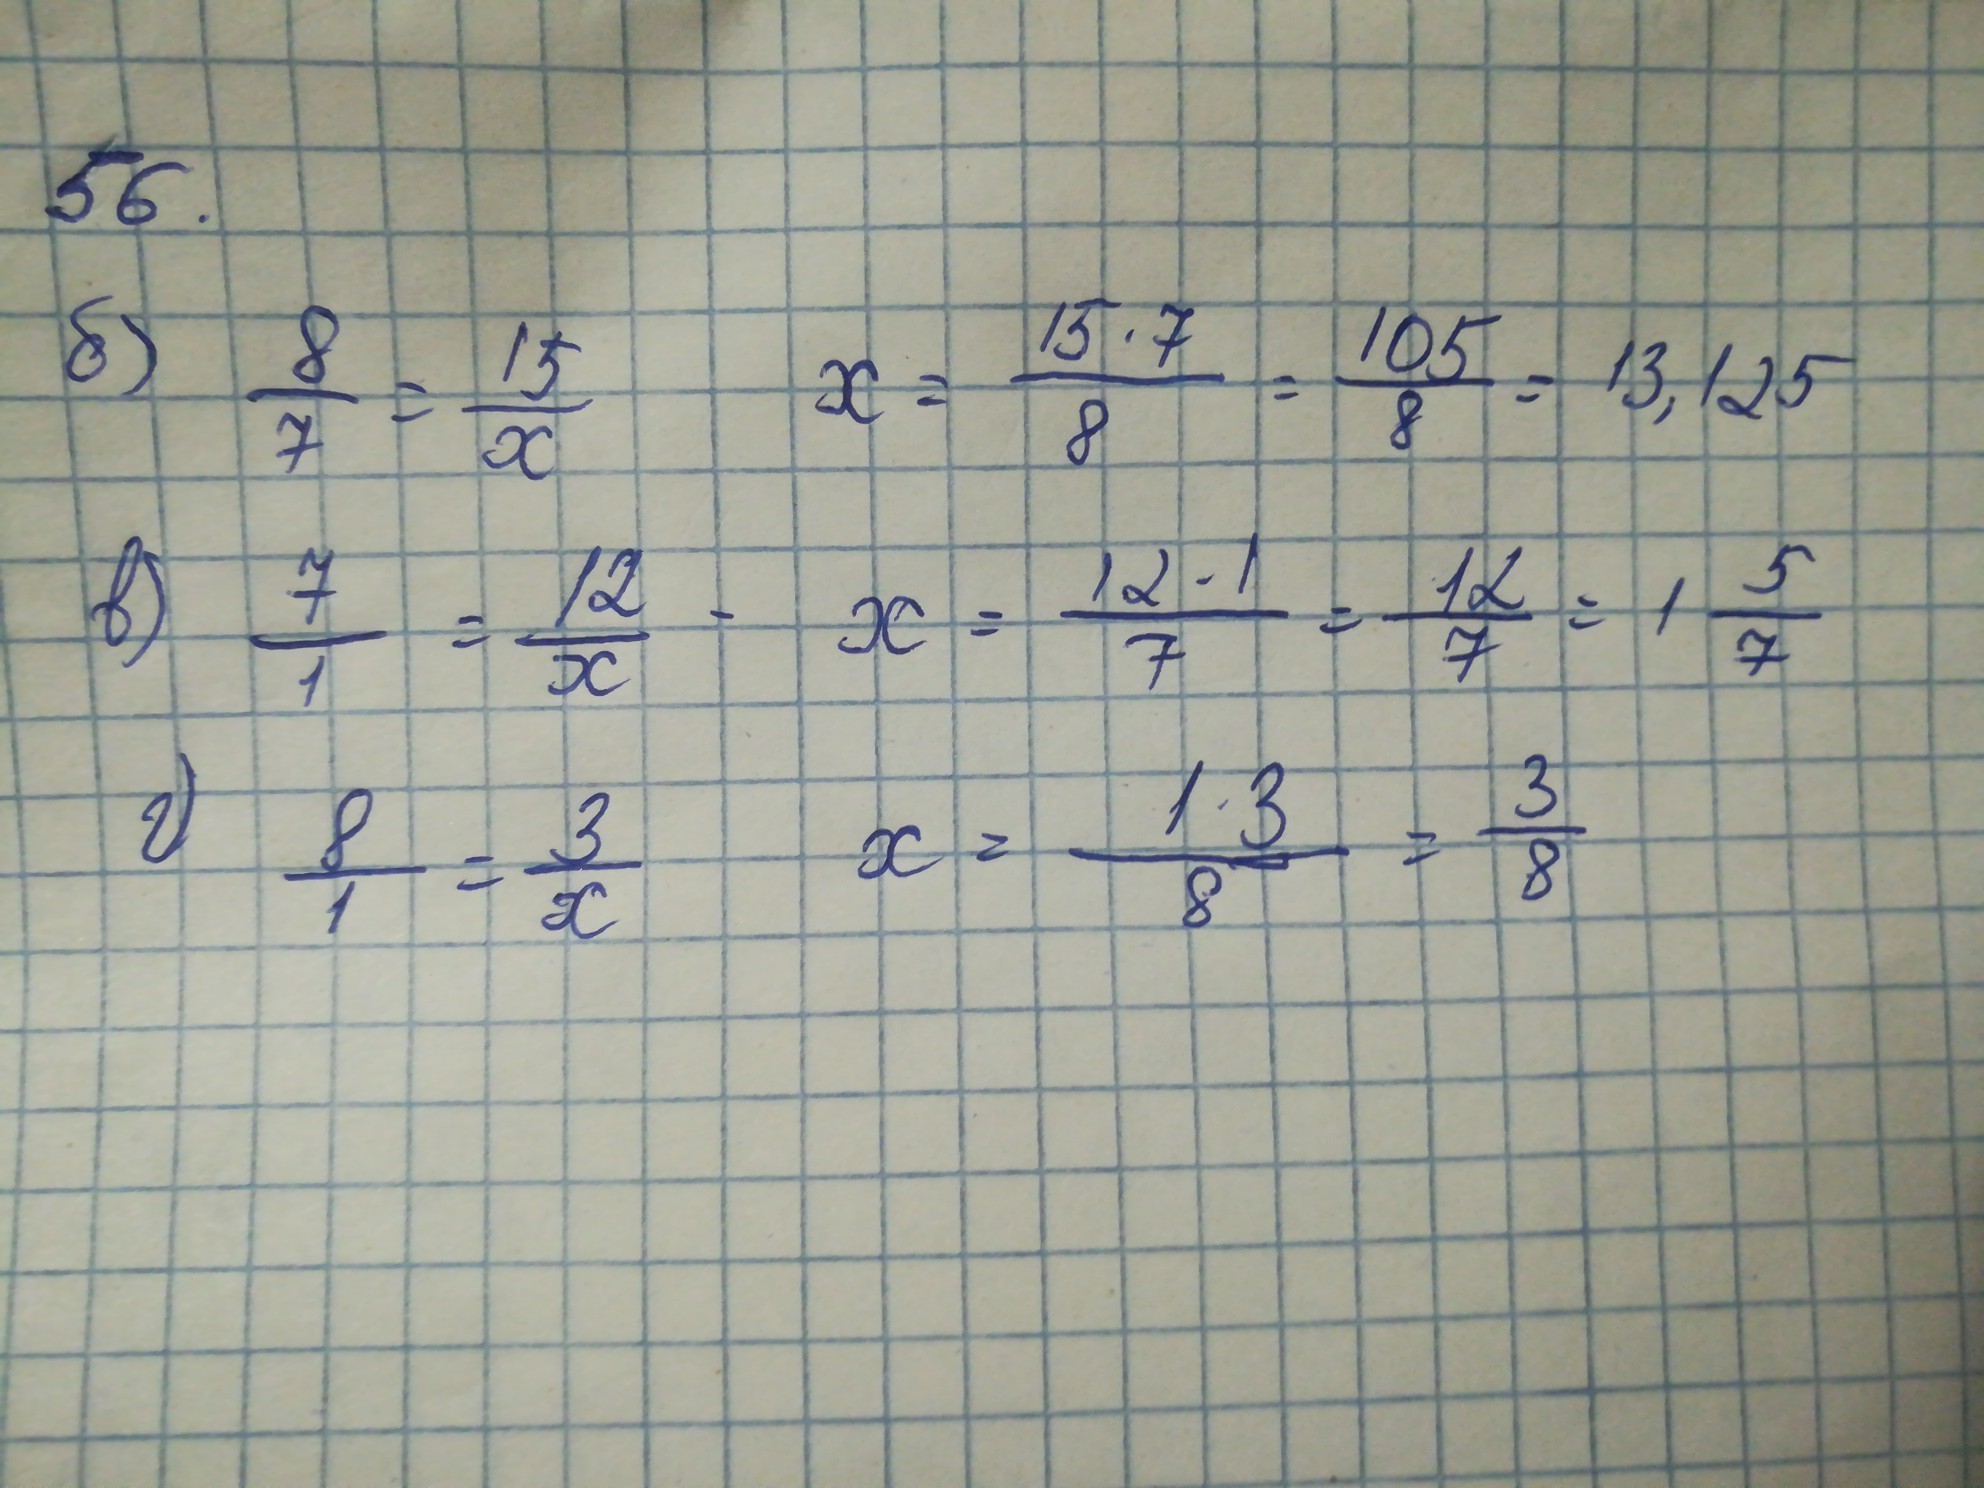 56.
б) 8/7 = 15/x x = 15·7/8 = 105/8 = 13,125
в) 7/1 = 12/x - x = 12·1/7 = 12/7 = 1 5/7
г) 8/1 = 3/x x = 1·3/8 = 3/8